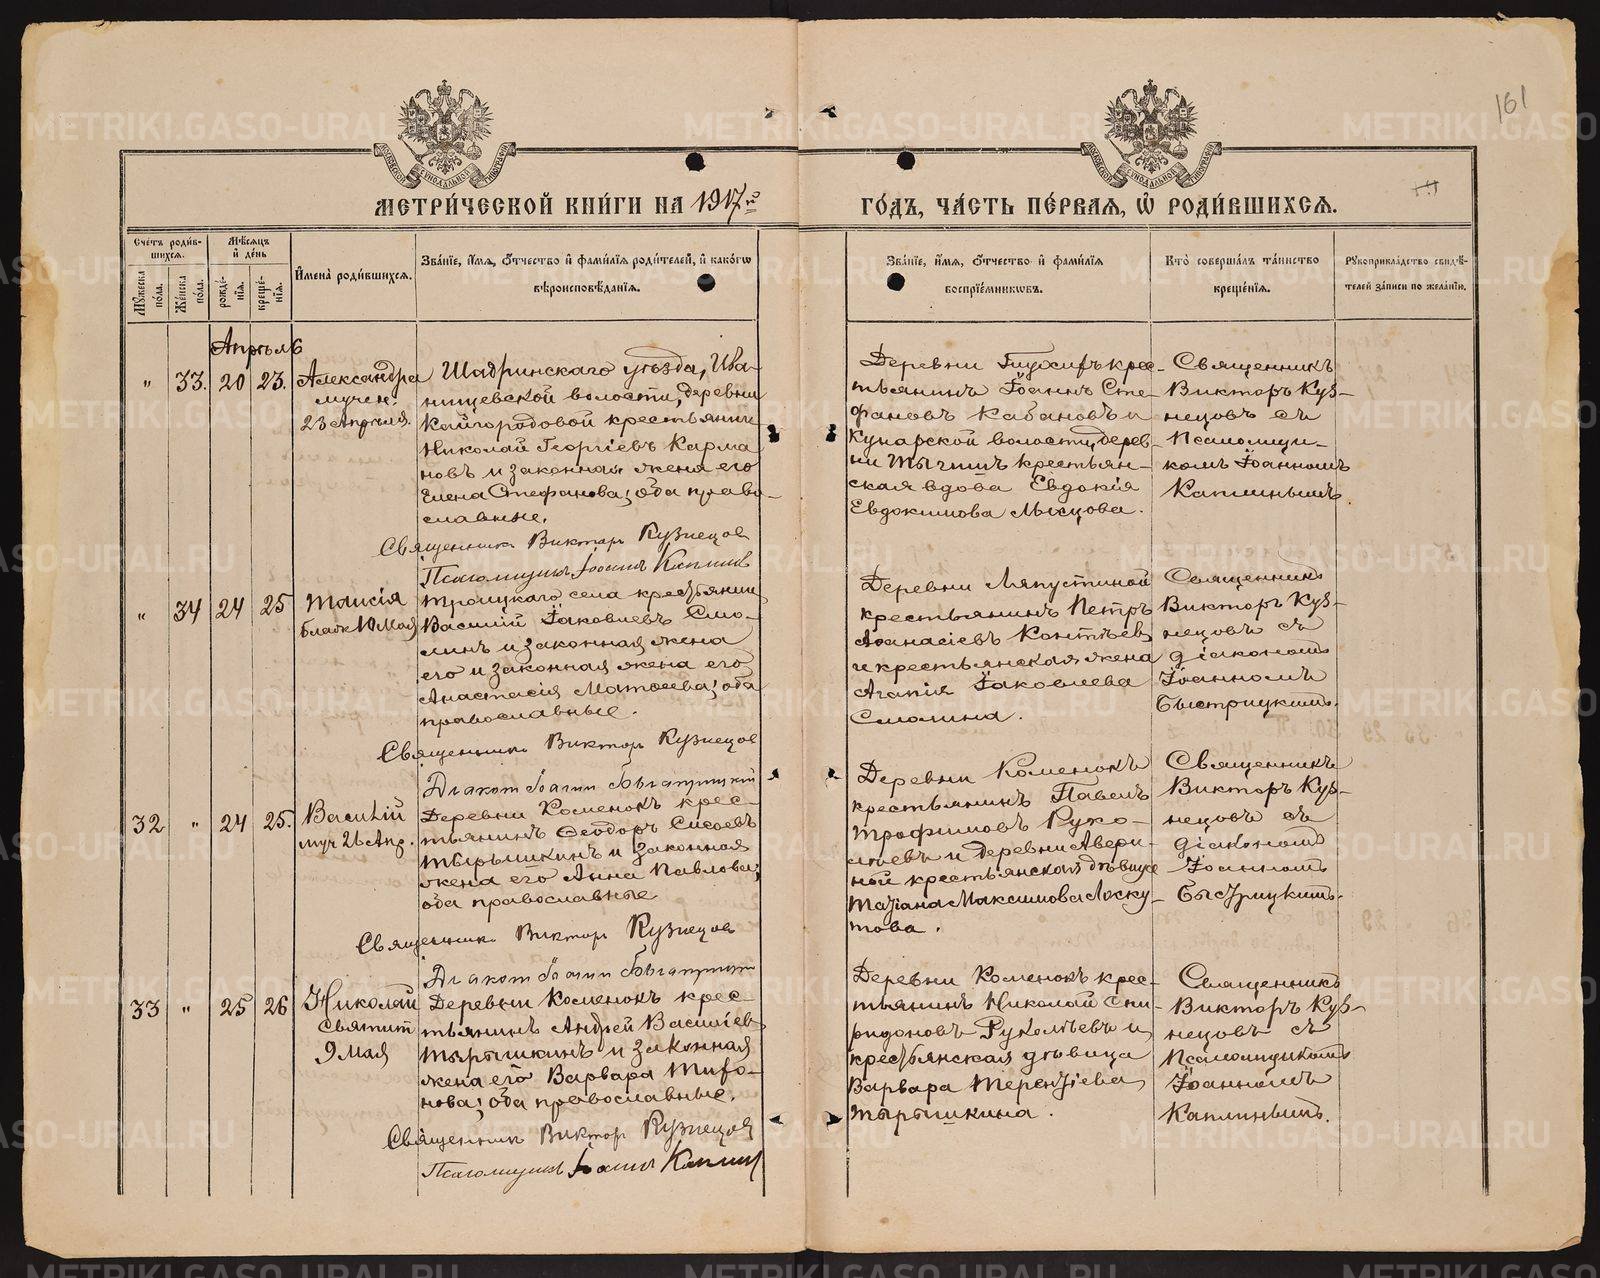 161
МЕТРИ́ЧЕСКОЙ КНИ́ГИ НА 1917го ГО́ДЪ, ЧА́СТЬ ПЕ́РВАЯ, Ѡ РОДИ́ВШИХСЯ.
Сче́тъ роди́в-
шихся.
Мѣ́сяцъ
и҆ де́нь
И҆мена̀ роди́вшихся.
Зва́нїе, и҆́мя, ѻ҆́тчество и҆ фами́лїя роди́телей, и҆ како́гѡ
вѣроисповѣ́данїя.
Зва́нїе, и҆́мя, ѻ҆́тчество и҆ фами́лїя
воспрїе́мникѡвъ.
Кто̀ соверша́лъ та́инство
креще́нїя.
Рꙋкоприкла́дство свидѣ́-
телей за́писи по жела́нїю.
Мꙋ́жеска
по́ла.
Же́нска
по́ла.
рожде́-
нїя.
креще́-
нїя.
Апрѣль
" 33. 20 23.
Александра
мучен.
23 Апрѣля.
Шадринскаго уѣзда, Ива-
нищевской волости, деревни
Кайгородовой крестьянинъ
Николай Георгіевъ Карма
новъ и законная жена его
Елена Стефанова; оба право-
славные.
Священникъ Викторъ Кузнецов
Псаломщикъ Іоаннъ Каплинъ
крес-
тьянинъ Іоаннъ Сте-
фановъ Кабановъ и
Кунарской волости, дерев-
ни крестьян-
ская вдова Евдокія
Евдокимова
Священникъ
Викторъ Куз-
нецовъ съ
Псаломщи-
комъ Іоанномъ
Каплинымъ.
" 34 24 25
Таисія
блаж 10 мая
Троицкаго села крестьянин
Василій Іаковлевъ Смо-
линъ и законная жена
его и законная жена его
Анастасія Матѳеева; оба
православные.
Священникъ Викторъ Кузнецов
Діакон Іоанн Быстрицкій
Деревни Ляпустиной
крестьянинъ Петръ
Аѳанасіевъ Контѣевъ
и крестьянская жена
Агапія Іаковлева
Смолина.
Священникъ
Викторъ Куз-
нецовъ съ
діакономъ
Іоанномъ
Быстрицкимъ.
32 " 24 25.
Василій
муч 26 Апр.
Деревни Коменокъ крес-
тьянинъ Ѳеодоръ Сисоевъ
Тырышкинъ и законная
жена его Анна Павлова;
оба православные
Священникъ Викторъ Кузнецов
Діакон Іоанн Быстрицкій
Деревни Коменокъ
крестьянинъ Павелъ
Трофимовъ Руко-
лѣевъ и деревни Авери-
ной крестьянская дѣвица
Татіана Максимова Лоску-
това.
Священникъ
Викторъ Куз-
нецовъ съ
діакономъ
Іоанномъ
Быстрицкимъ.
33 " 25 26
Николай
Святит
9 мая
Деревни Коменокъ крес-
тьянинъ Андрей Василіев
Тырышкинъ и законная
жена его Варвара Тифо-
нова; оба православные.
Священникъ Викторъ Кузнецов
Псаломщикъ Іоаннъ Каплин
Деревни Коменокъ крес-
тьянинъ Николай Спи-
ридоновъ Руколѣевъ и
крестьянская дѣвица
Варвара Терентіева
Тырышкина.
Священникъ
Викторъ Куз-
нецовъ съ
Псаломщикомъ
Іоанномъ
Каплинымъ.